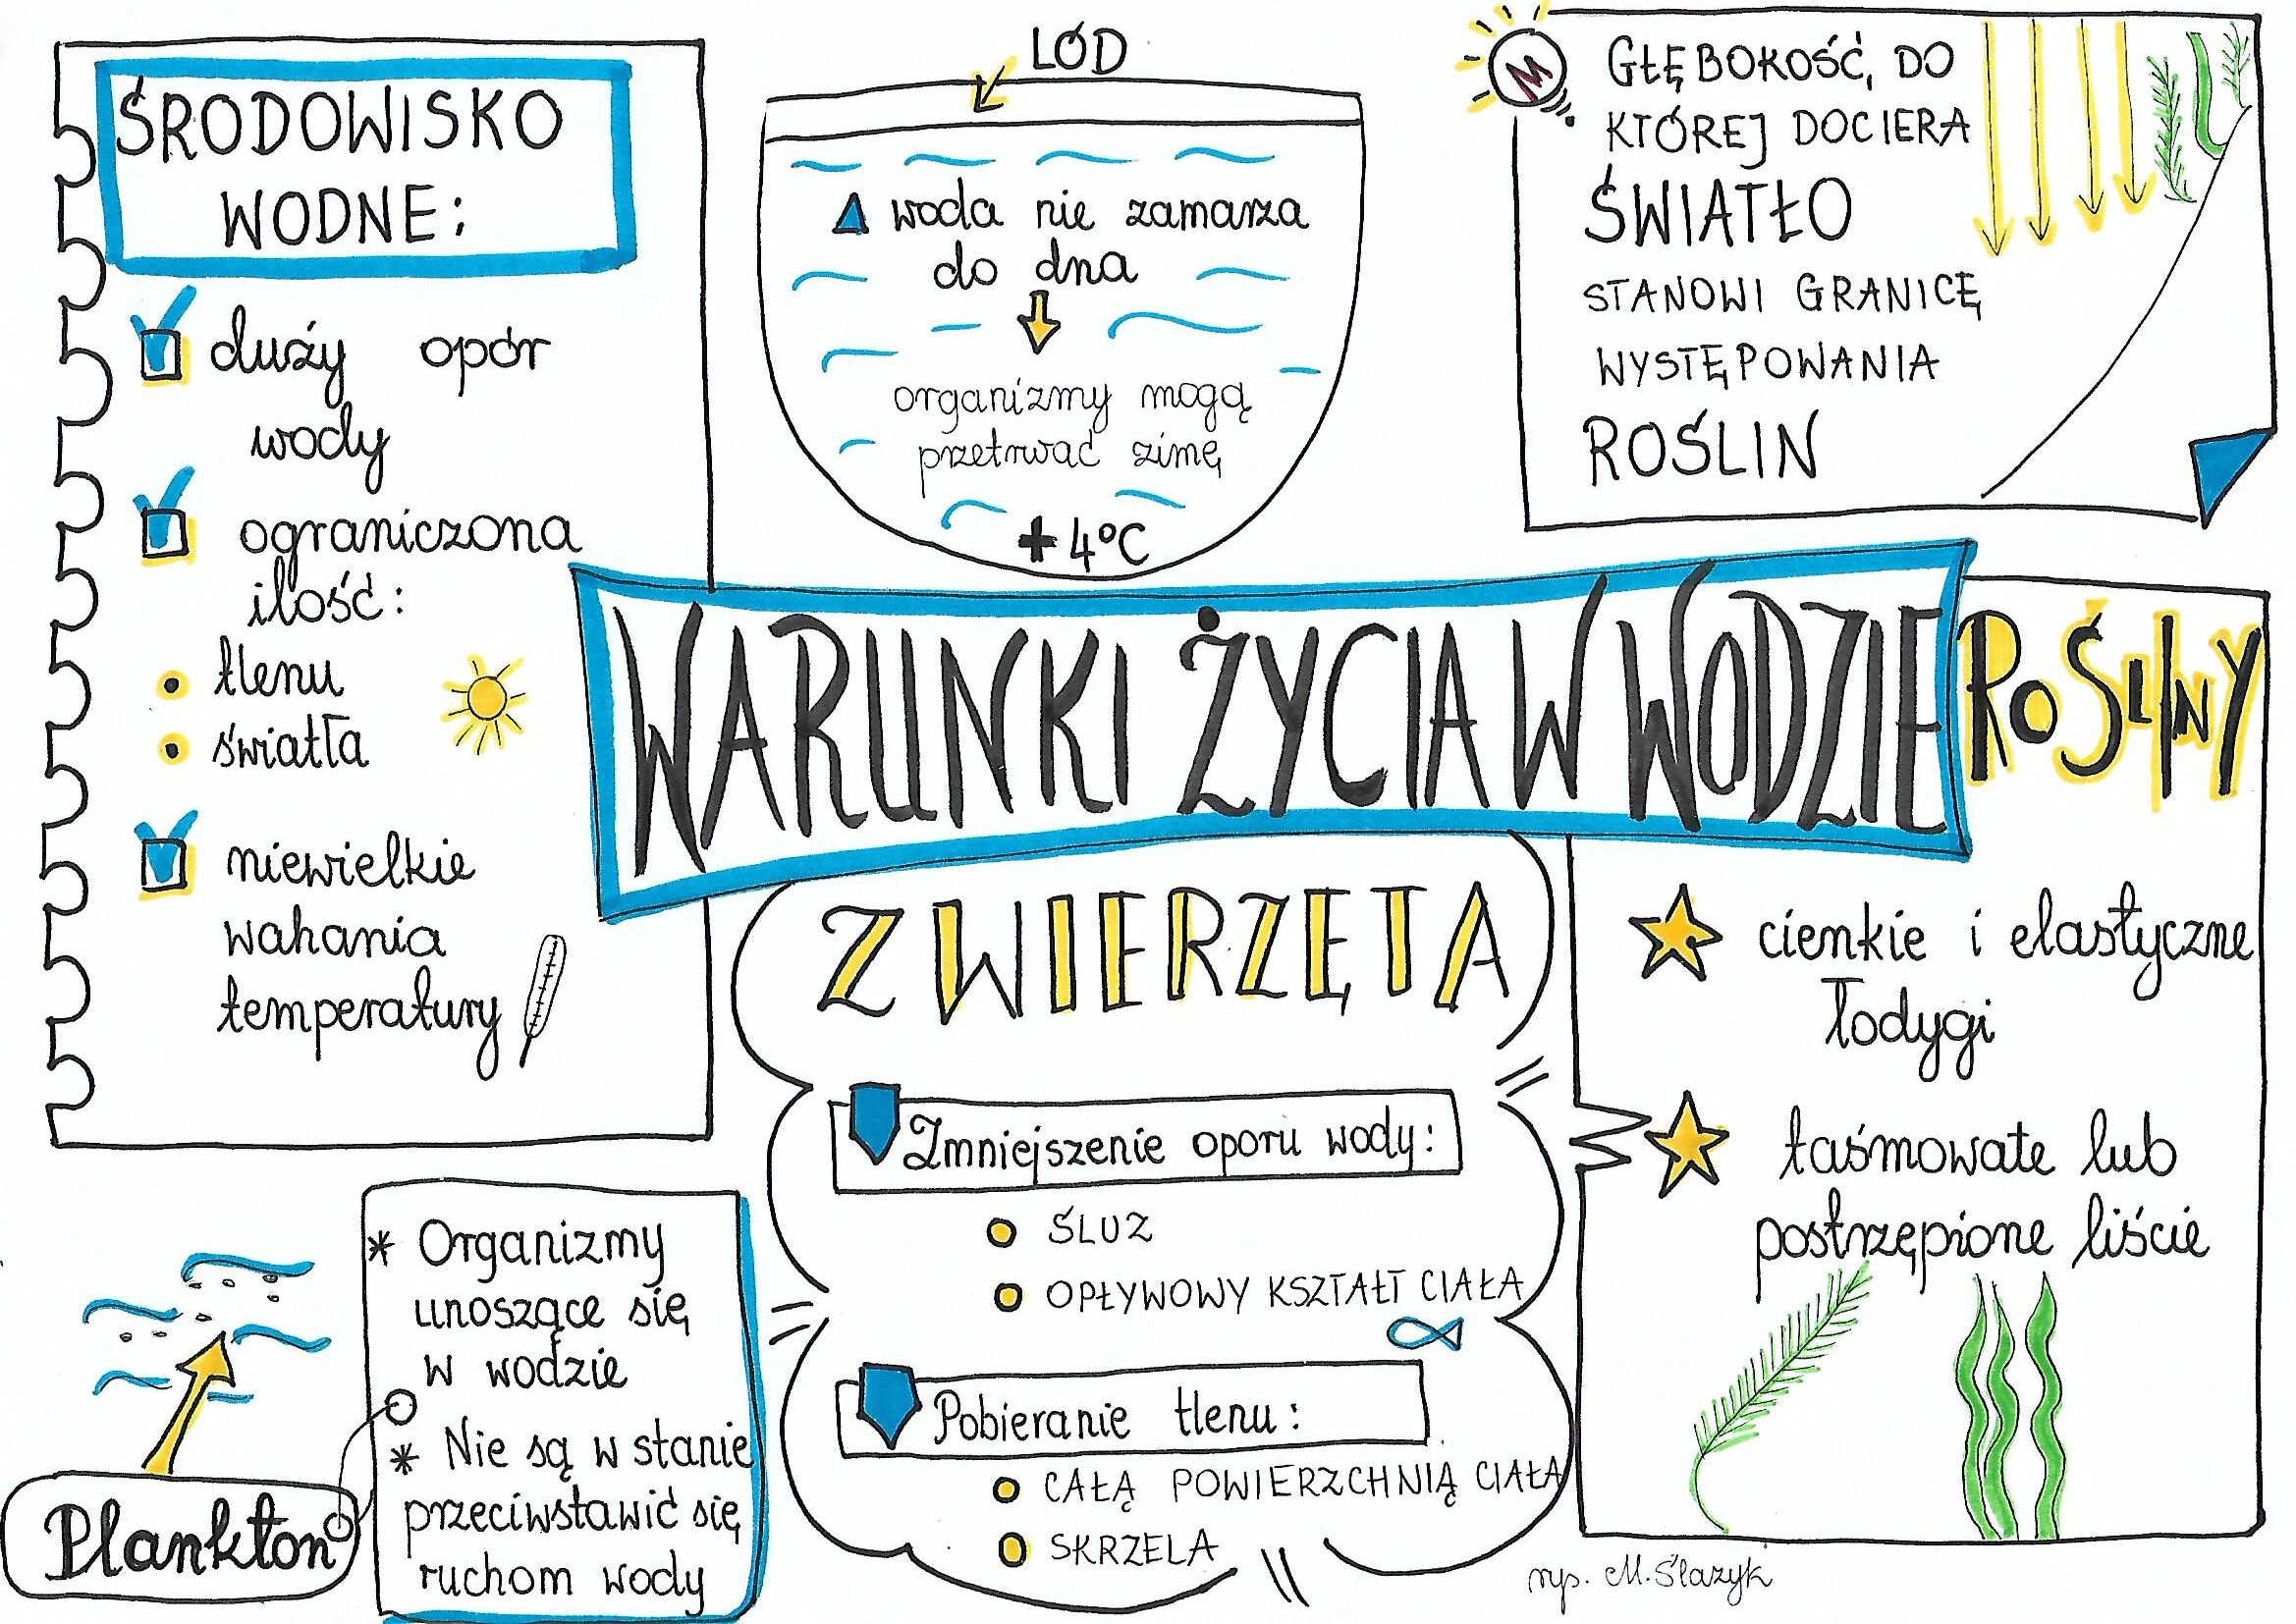 ŚRODOWISKO
WODNE:
duży opór
wody
ograniczona
ilość:
tlenu
światła
niewielkie
wahania
temperatury
LÓD
woda nie zamarza
do dna
organizmy mogą
przetrwać zimę
+4°C
M
GŁĘBOKOŚĆ, DO
KTÓREJ DOCIERA
ŚWIATŁO
STANOWI GRANICĘ
WYSTĘPOWANIA
ROŚLIN
WARUNKI ŻYCIA W WODZIE
ZWIERZĘTA
Zmniejszenie oporu wody:
ŚLUZ
OPŁYWOWY KSZTAŁT CIAŁA
Pobieranie tlenu:
CAŁĄ POWIERZCHNIĄ CIAŁA
SKRZELA
ROŚLINY
cienkie i elastyczne
łodygi
taśmowate lub
postrzępione liście
Plankton
* Organizmy
unoszące się
w wodzie
* Nie są w stanie
przeciwstawić się
ruchom wody
rys. M. Ślazyk